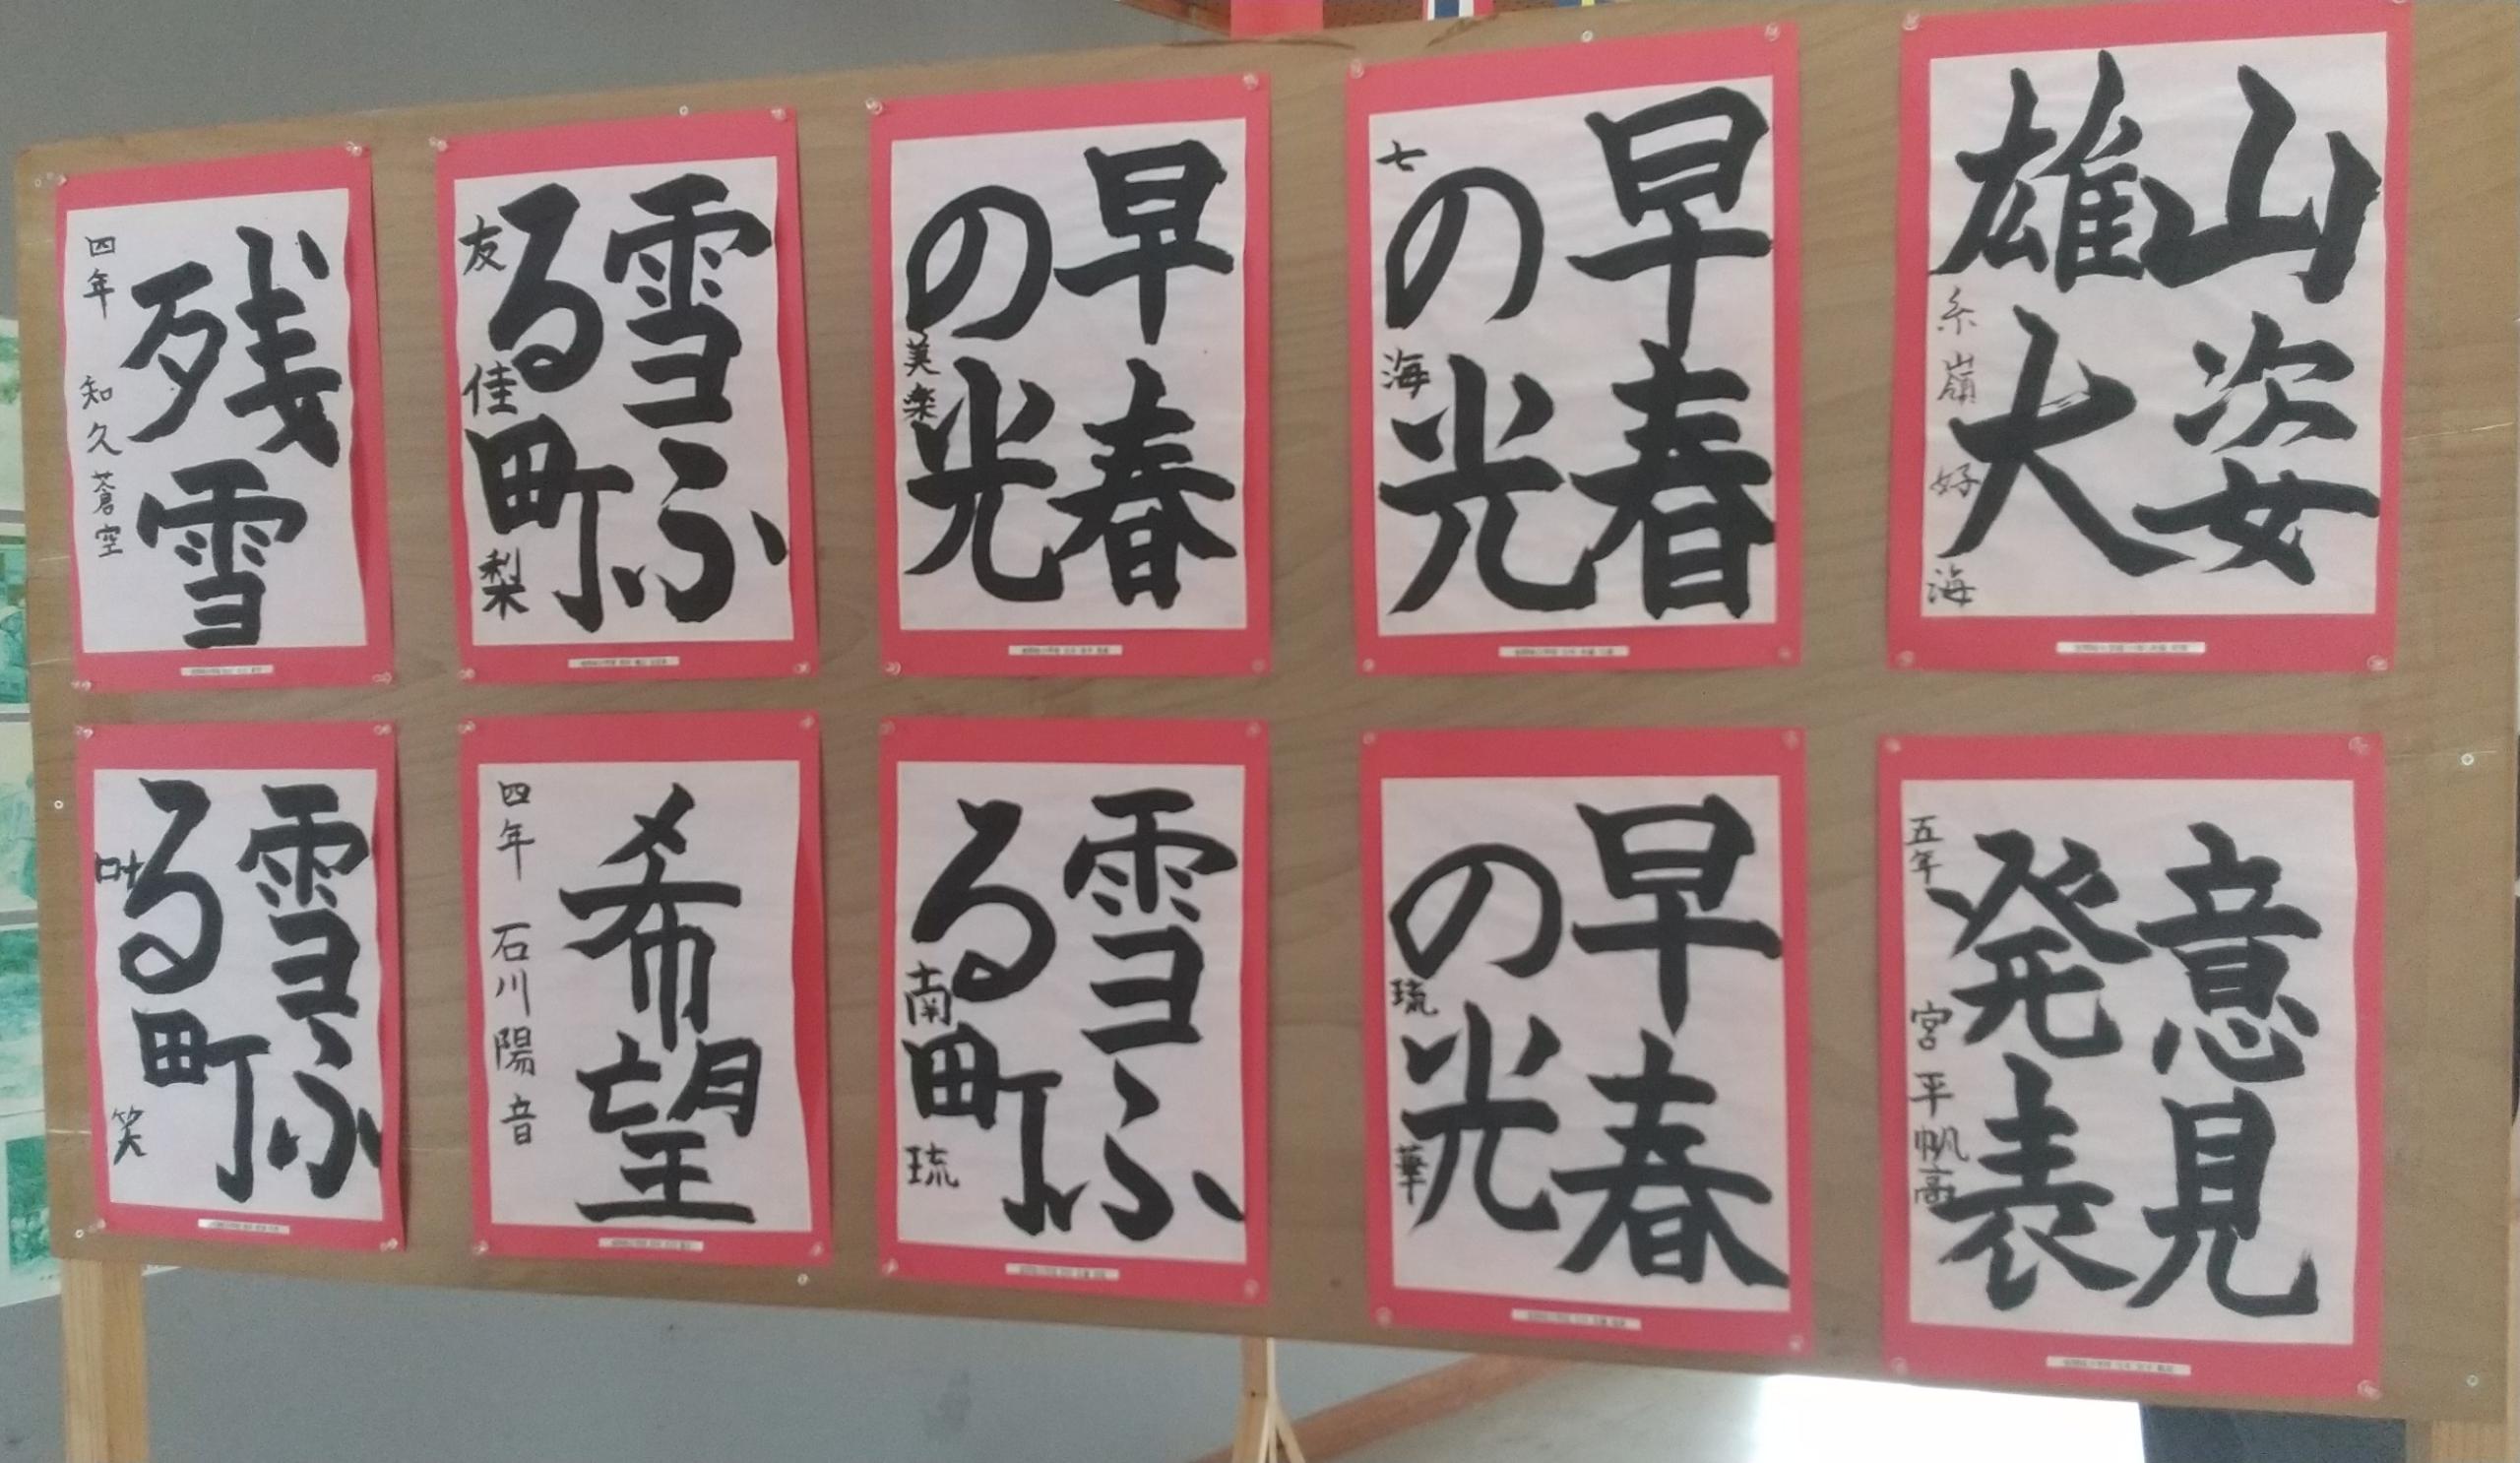 山姿
雄大
糸嶺
好海
早春
の光
七海
早春
の光
美楽
雪ふ
る町
友佳梨
残雪
四年 知久蒼空
意見
発表
五年 宮平帆高
早春
の光
琉華
雪ふ
る町
南琉
希望
四年 石川陽音
雪ふ
る町
叶笑